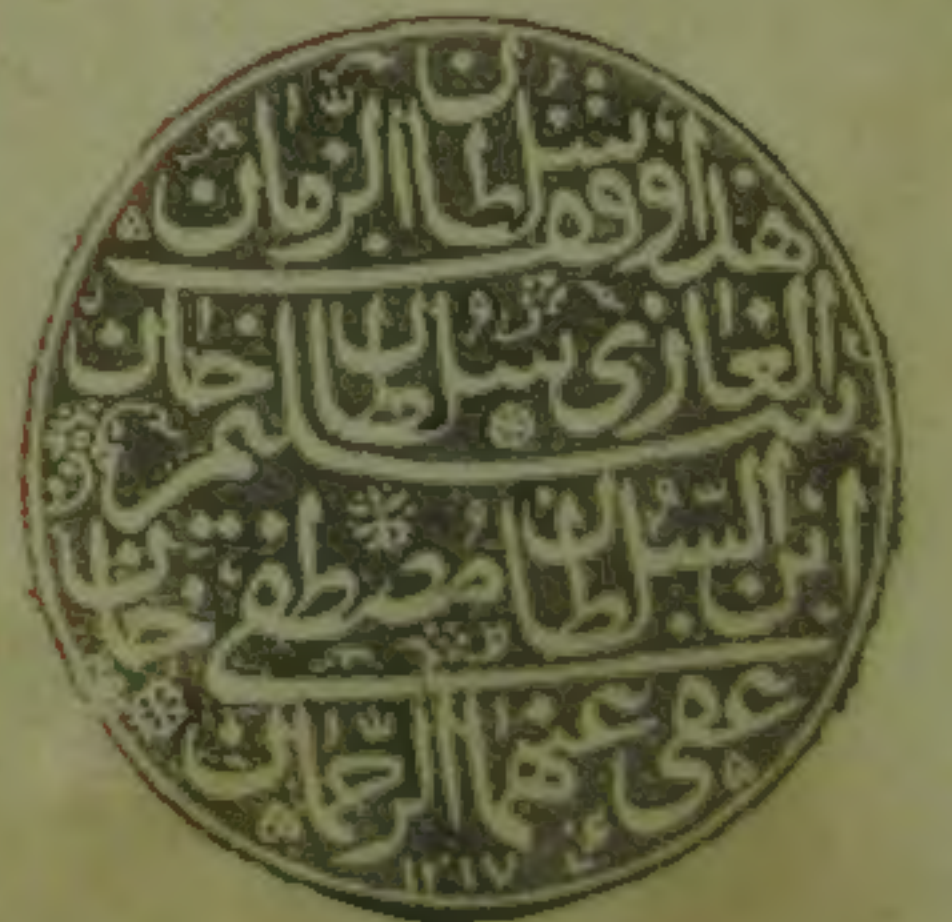 هذا وقف سلطان الزمان
الغازي سلطان سليم خان
ابن السلطان مصطفى خان
عفى عنهما الرحمان
١٢١٧